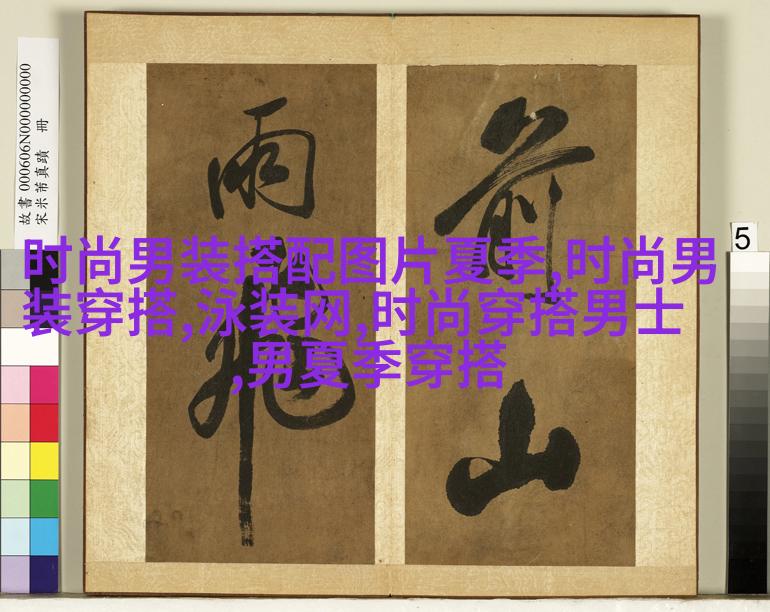 故書 000606N000000000
宋米芾真蹟 冊
5
前山
雨飛
时尚男装搭配图片夏季,时尚男
装穿搭,泳装网,时尚穿搭男士
,男夏季穿搭